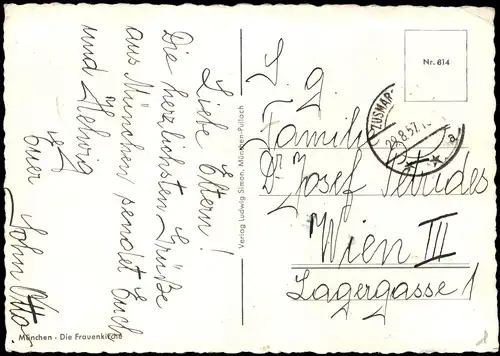 Liebe Eltern!
Die herzlichsten Grüße
aus München sendet Euch
und Hedwig
Euer Sohn Otto
München - Die Frauenkirche
Verlag Ludwig Simon, München-Pullach
Nr. 814
ZUSMAR
28.8.57
a
S. g.
Familie
Dr Josef Petrides
Wien III
Lagergasse 1